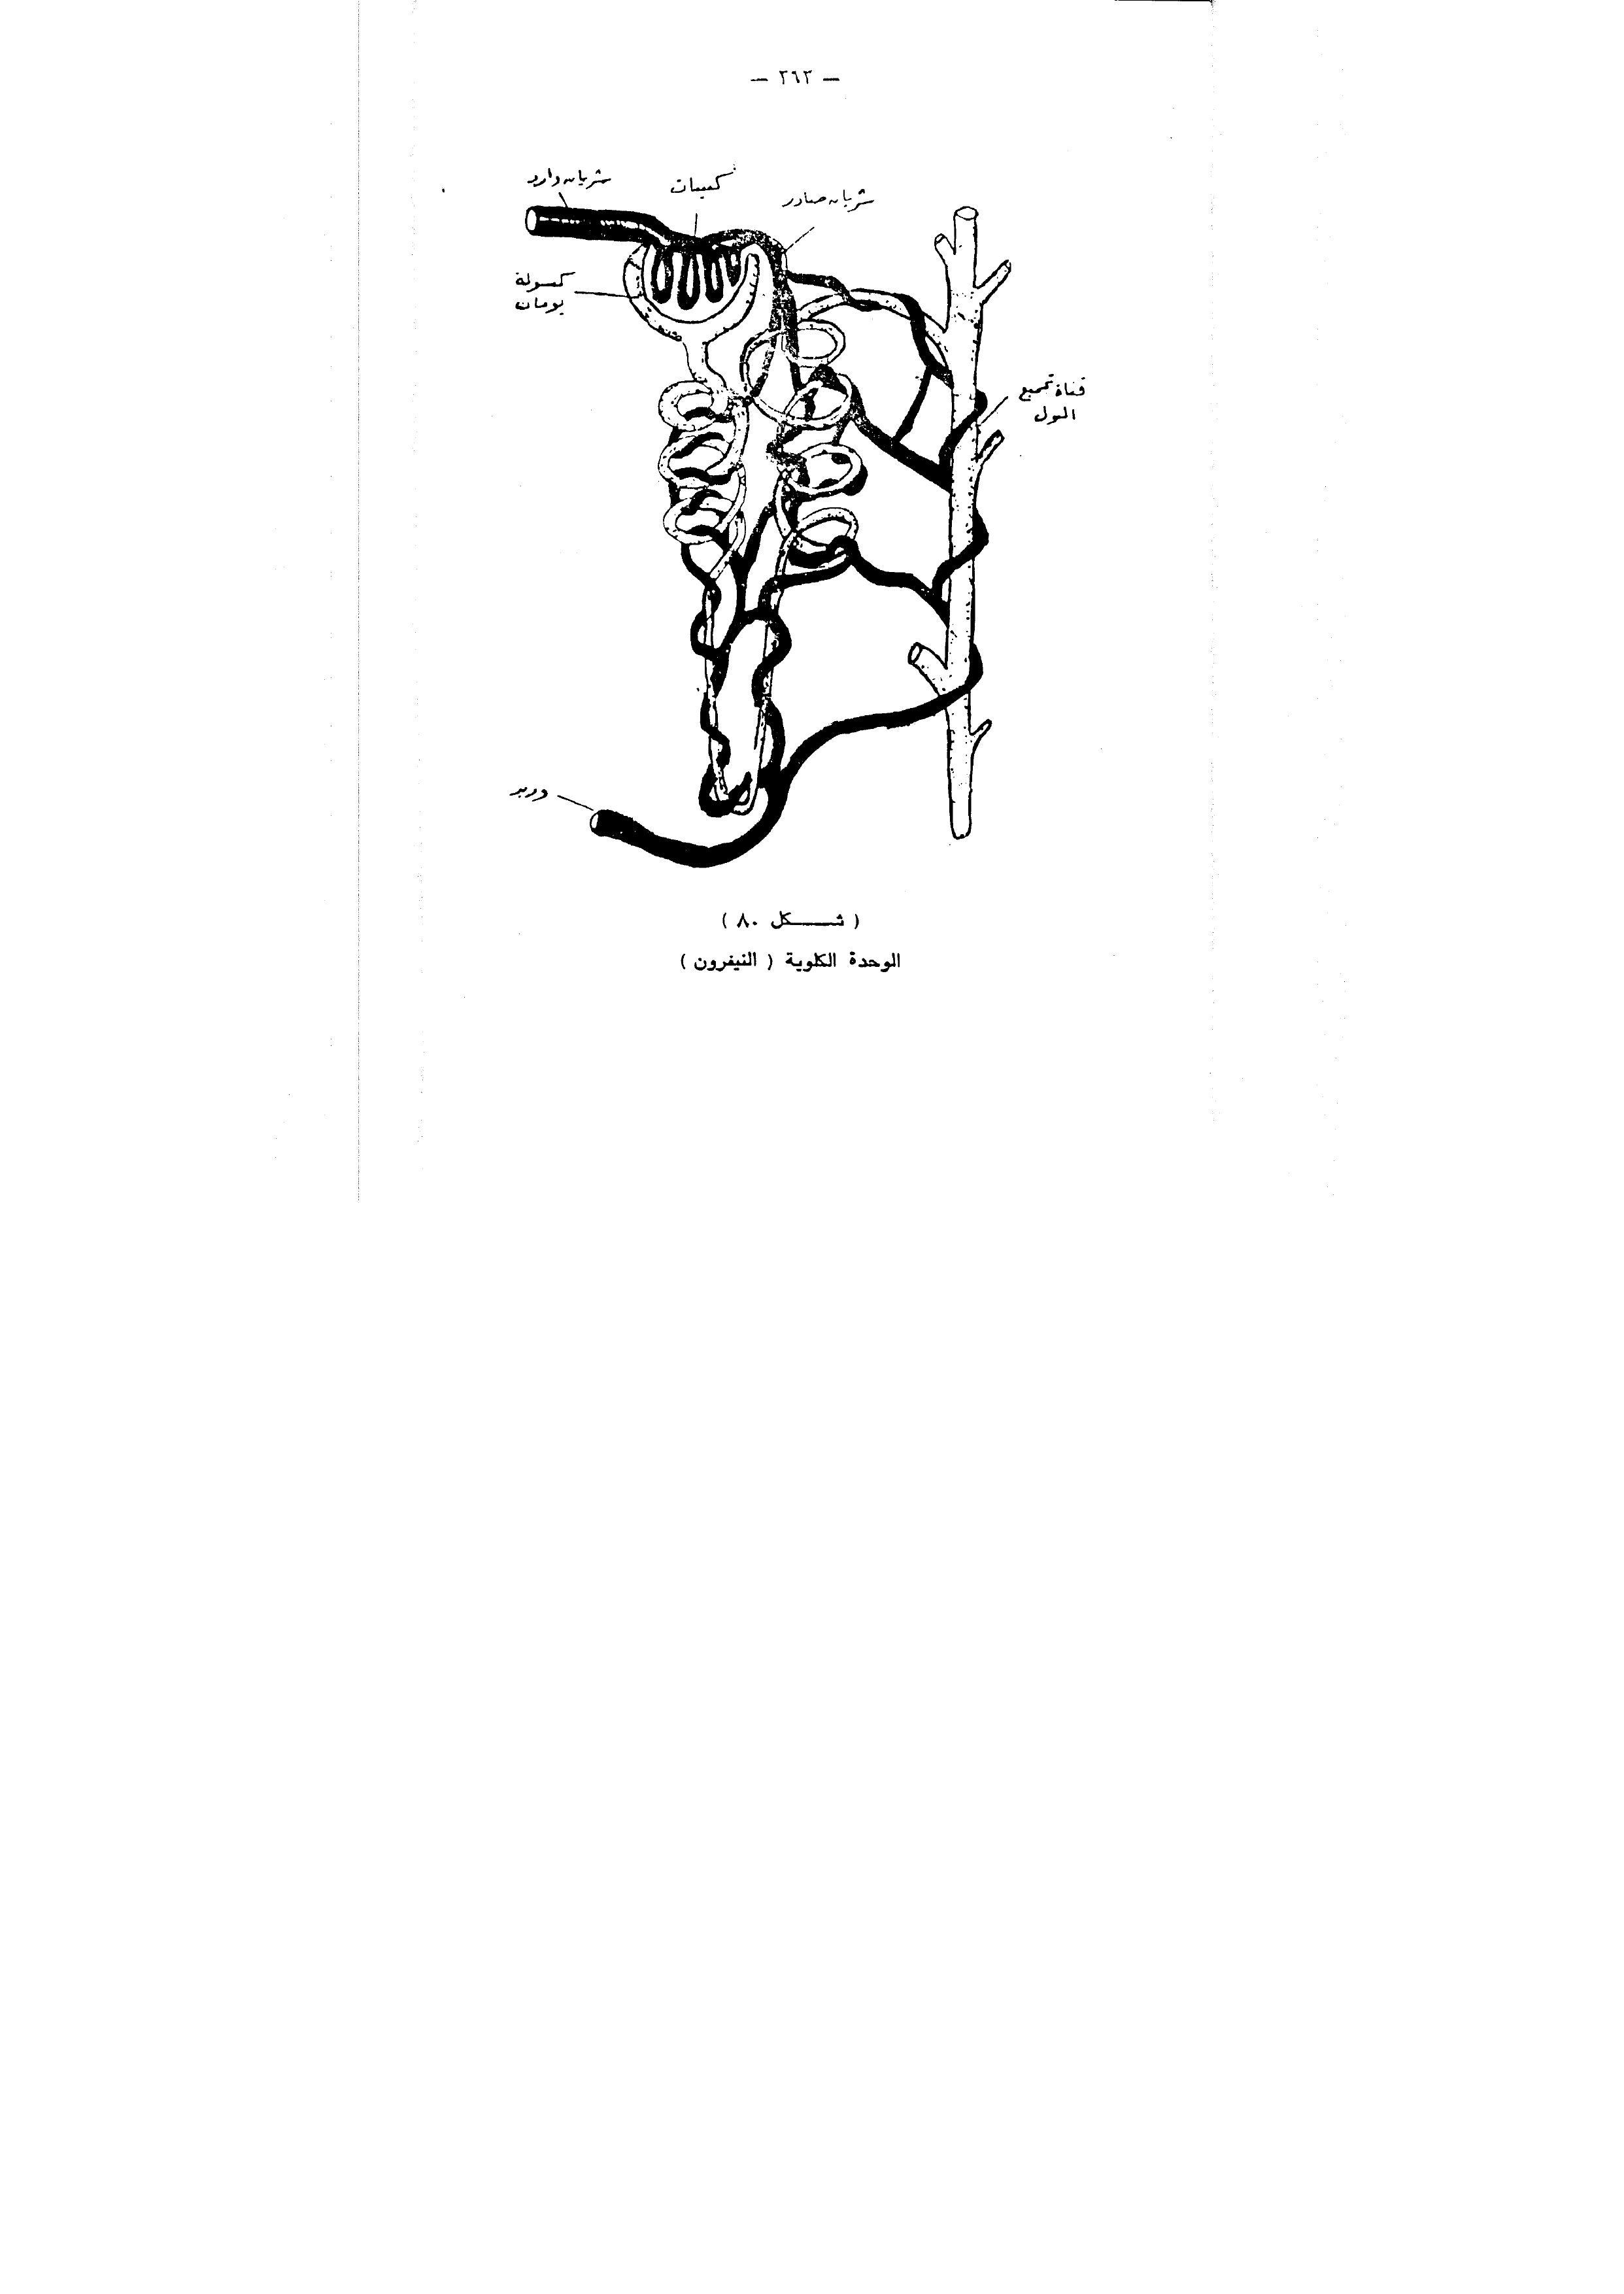 — ٢٦٣ —
شريان وارد
كبيبات
شريان صادر
كبسولة
بومان
قناة تجميع
البول
وريد
( شكل ٨٠ )
الوحدة الكلوية ( النيفرون )